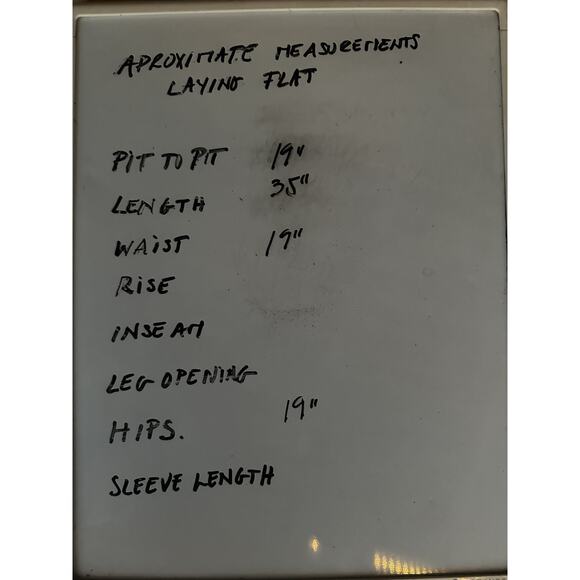 APROXIMATE MEASUREMENTS
LAYING FLAT
PIT TO PIT 19"
LENGTH 35"
WAIST 19"
RISE
INSEAM
LEG OPENING
HIPS. 19"
SLEEVE LENGTH